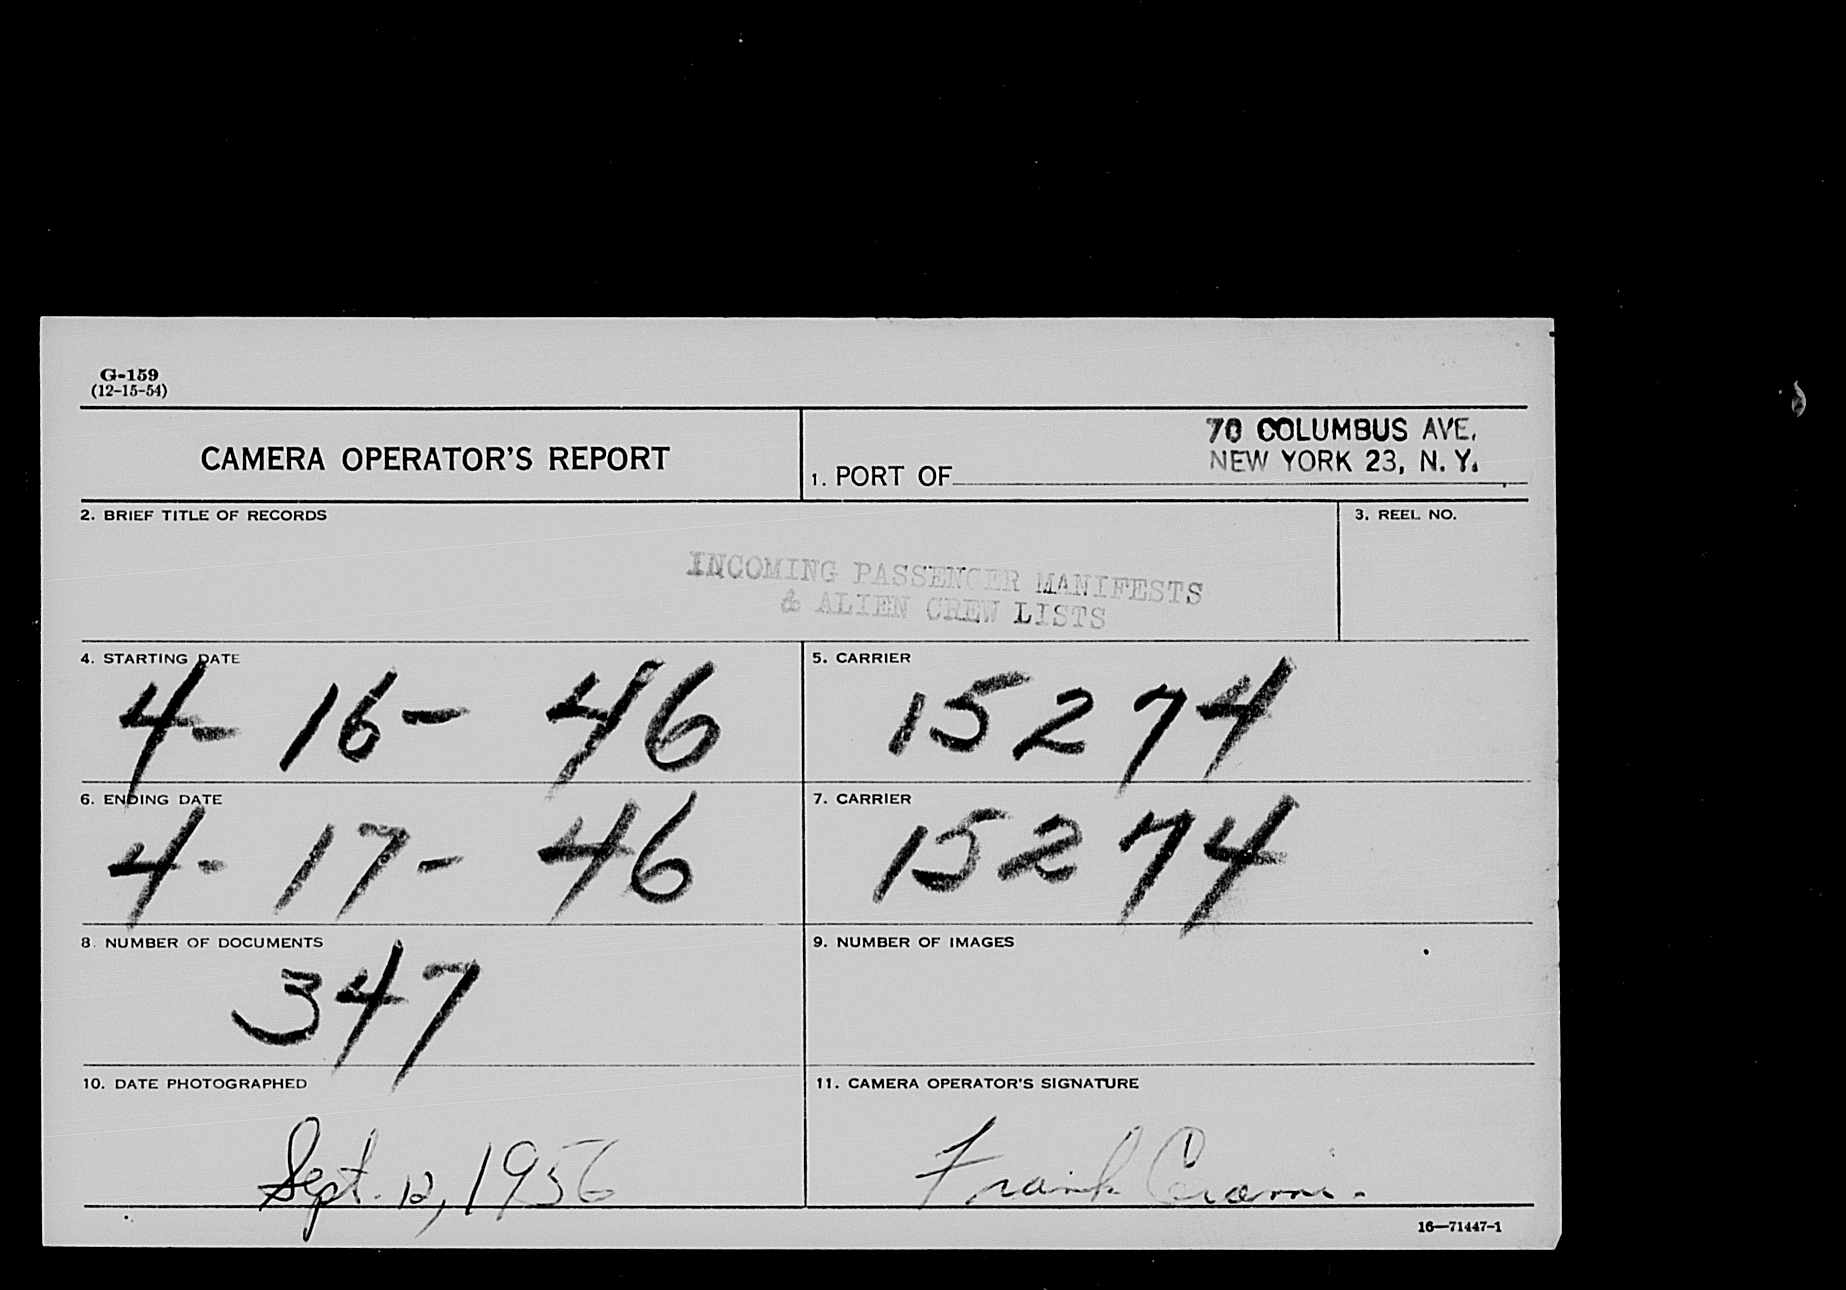 G-159
(12-15-54)
CAMERA OPERATOR'S REPORT
70 COLUMBUS AVE.
NEW YORK 23, N. Y.
1. PORT OF
2. BRIEF TITLE OF RECORDS
3. REEL NO.
INCOMING PASSENGER MANIFESTS
& ALIEN CREW LISTS
4. STARTING DATE
4- 16- 46
5. CARRIER
15274
6. ENDING DATE
4- 17- 46
7. CARRIER
15274
8. NUMBER OF DOCUMENTS
347
9. NUMBER OF IMAGES
10. DATE PHOTOGRAPHED
Sept. 12, 1956
11. CAMERA OPERATOR'S SIGNATURE
Frank
16—71447-1